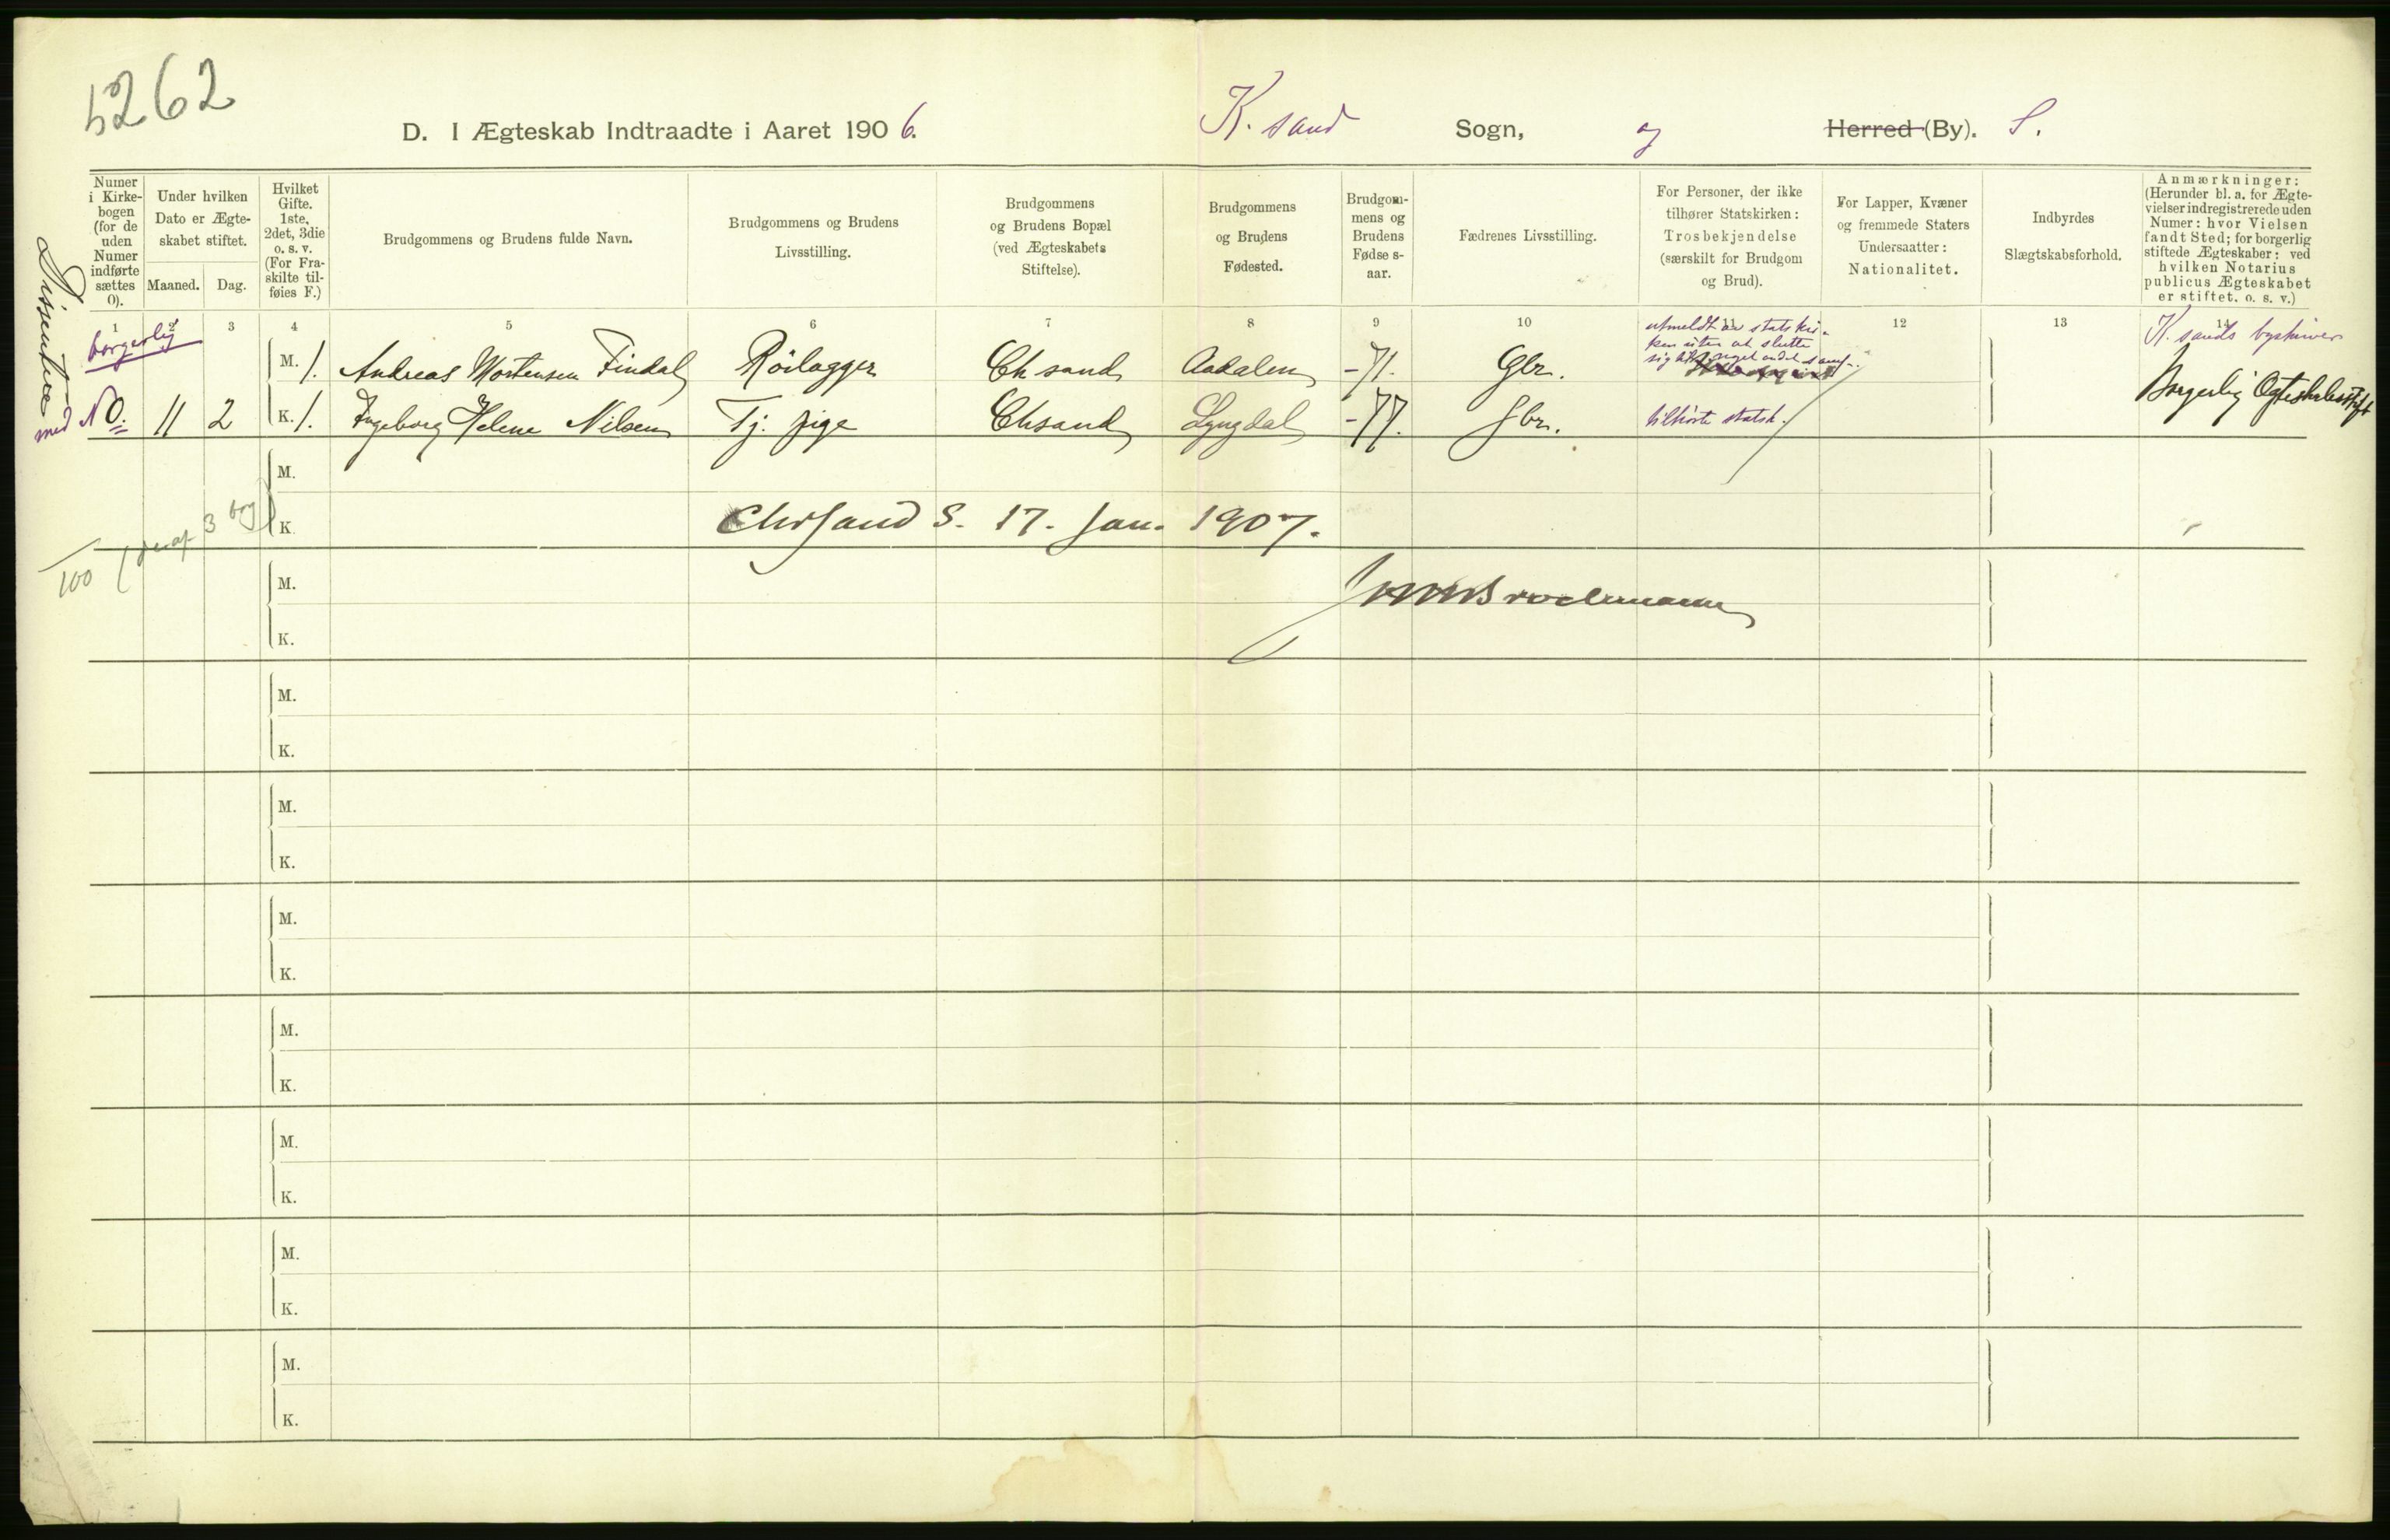 5262
D. I Ægteskab Indtraadte i Aaret 1906.
K. sand Sogn, og Herred (By). S.
Numer i Kirke-bogen (for de uden Numer indførte sættes 0).
Under hvilken Dato er Ægte-skabet stiftet.
Maaned. Dag.
Hvilket Gifte. 1ste, 2det, 3die o. s. v. (For Fra-skilte til-føies F.)
Brudgommens og Brudens fulde Navn.
Brudgommens og Brudens Livsstilling.
Brudgommens og Brudens Bopæl (ved Ægteskabets Stiftelse).
Brudgommens og Brudens Fødested.
Brudgom-mens og Brudens Fødse s-aar.
Fædrenes Livsstilling.
For Personer, der ikke tilhører Statskirken: Trosbekjendelse (særskilt for Brudgom og Brud).
For Lapper, Kvæner og fremmede Staters Undersaatter: Nationalitet.
Indbyrdes Slægtskabsforhold.
Anmærkninger: (Herunder bl. a. for Ægte-vielser indregistrerede uden Numer: hvor Vielsen fandt Sted; for borgerlig stiftede Ægteskaber: ved hvilken Notarius publicus Ægteskabet er stiftet. o. s. v.)
1 2 3 4 5 6 7 8 9 10 11 12 13 14
Dissentere
borgerlig
utmeldt av statskir-
ken uten at slutte
sig til noget andet samf.
K. sands byskriver
M. 1. Andreas Mortensen Findal Rörlægger Chsand Aadalen -71. Gbr.
Borgerlig Ægteskabsstift
med No 0. 11 2 K. 1. Ingeborg Helene Nilsen Tj. pige Chsand Lyngdal -77. Gbr. tilhörte statsk.
M.
K. Chrsand S. 17. Jan. 1907.
100 (deraf 3 borg)
M.
K.
M.
K.
M.
K.
M.
K.
M.
K.
M.
K.
M.
K.
M.
K.